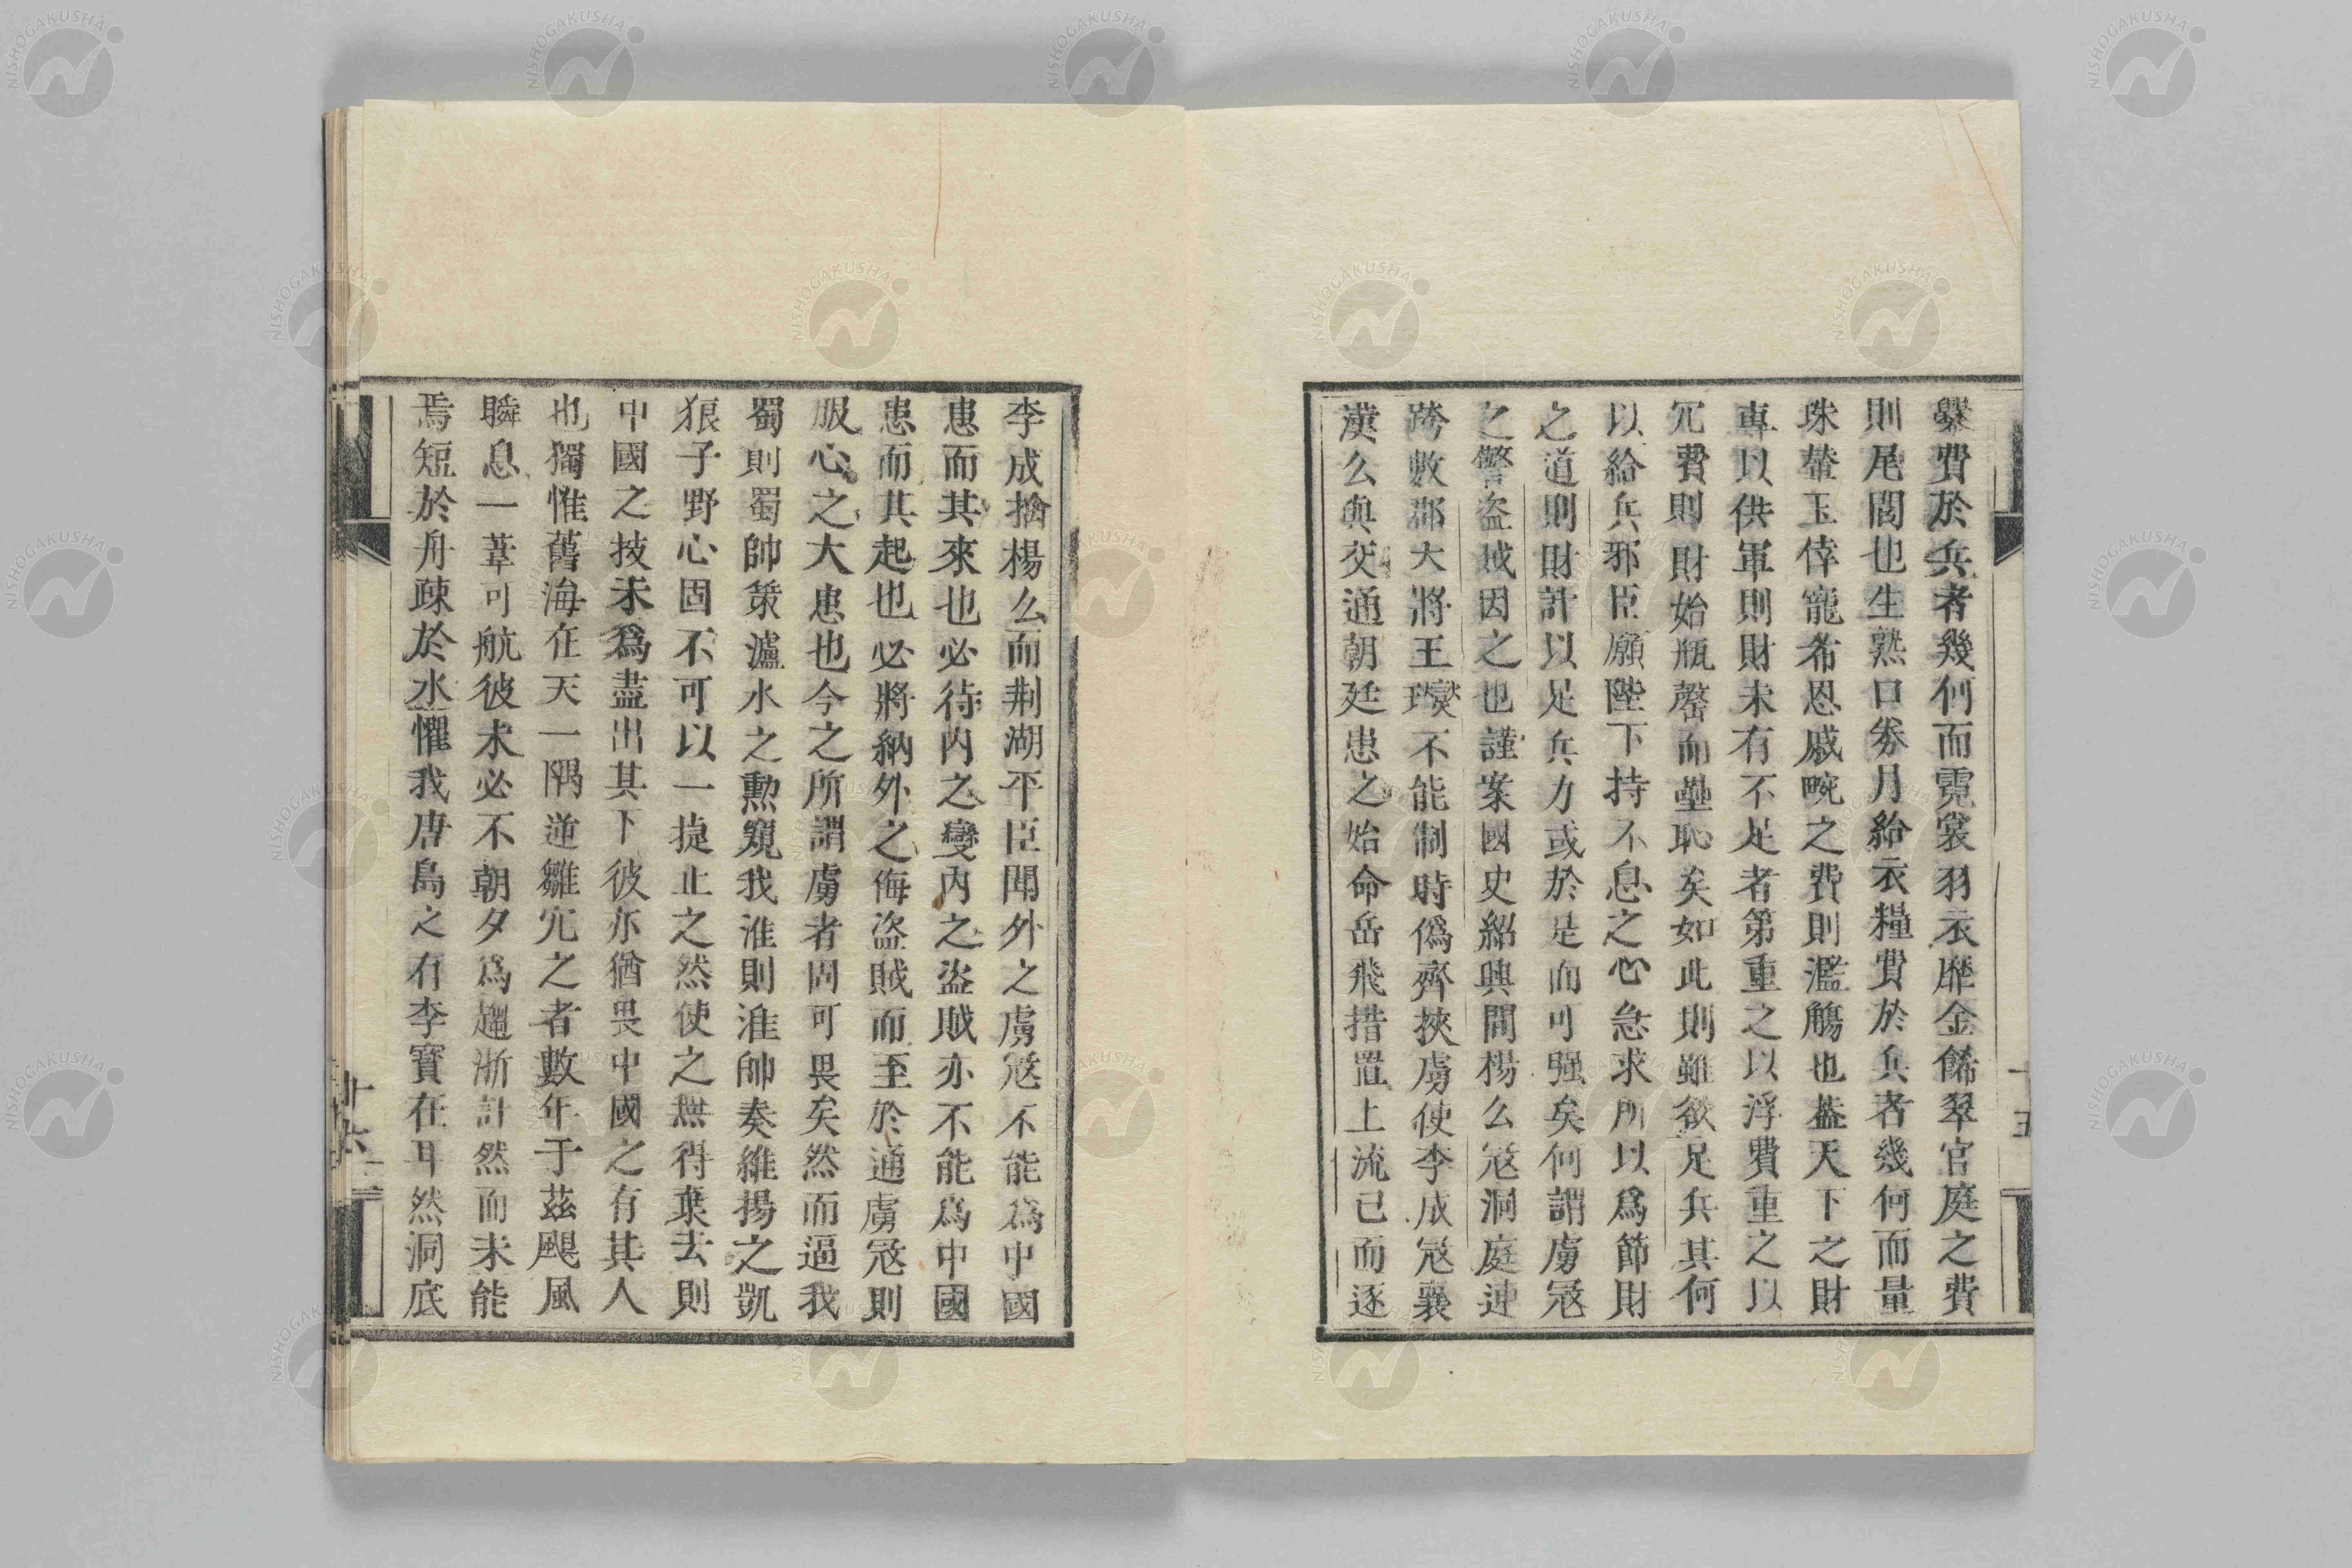 纍費於兵者幾何而霓裳羽衣靡金餙翠官庭之費
則尾閭也生熟口劵月給衣糧費於兵者幾何而量
珠輦玉倖寵希恩戚畹之費則濫觴也葢天下之財
專以供軍則財未有不足者第重之以浮費重之以
冗費則財始瓶罄而壘恥矣如此則雖欲足兵其何
以給兵邪臣願陛下持不息之心急求所以爲節財
之道則財計以足兵力或於是而可强矣何謂虜冦
之警盜賊因之也謹案國史紹興間楊么冦洞庭連
跨數郡大將王𤫉不能制時僞齊挾虜使李成冦襄
漢么與交通朝廷患之始命岳飛措置上流已而逐
李成擒楊么而荆湖平臣聞外之虜冦不能爲中國
患而其來也必待内之變内之盜賊亦不能爲中國
患而其起也必將納外之侮盜賊而至於通虜冦則
服心之大患也今之所謂虜者固可畏矣然而逼我
蜀則蜀帥策瀘水之勲窺我淮則淮帥奏維揚之凱
狼子野心固不可以一捷止之然使之無得棄去則
中國之技未爲盡出其下彼亦猶畏中國之有其人
也獨惟舊海在天一隅逆雛宂之者數年于茲颶風
瞬息一葦可航彼未必不朝夕爲趨浙計然而未能
焉短於舟疎於水懼我唐島之有李寶在耳然洞底
十六